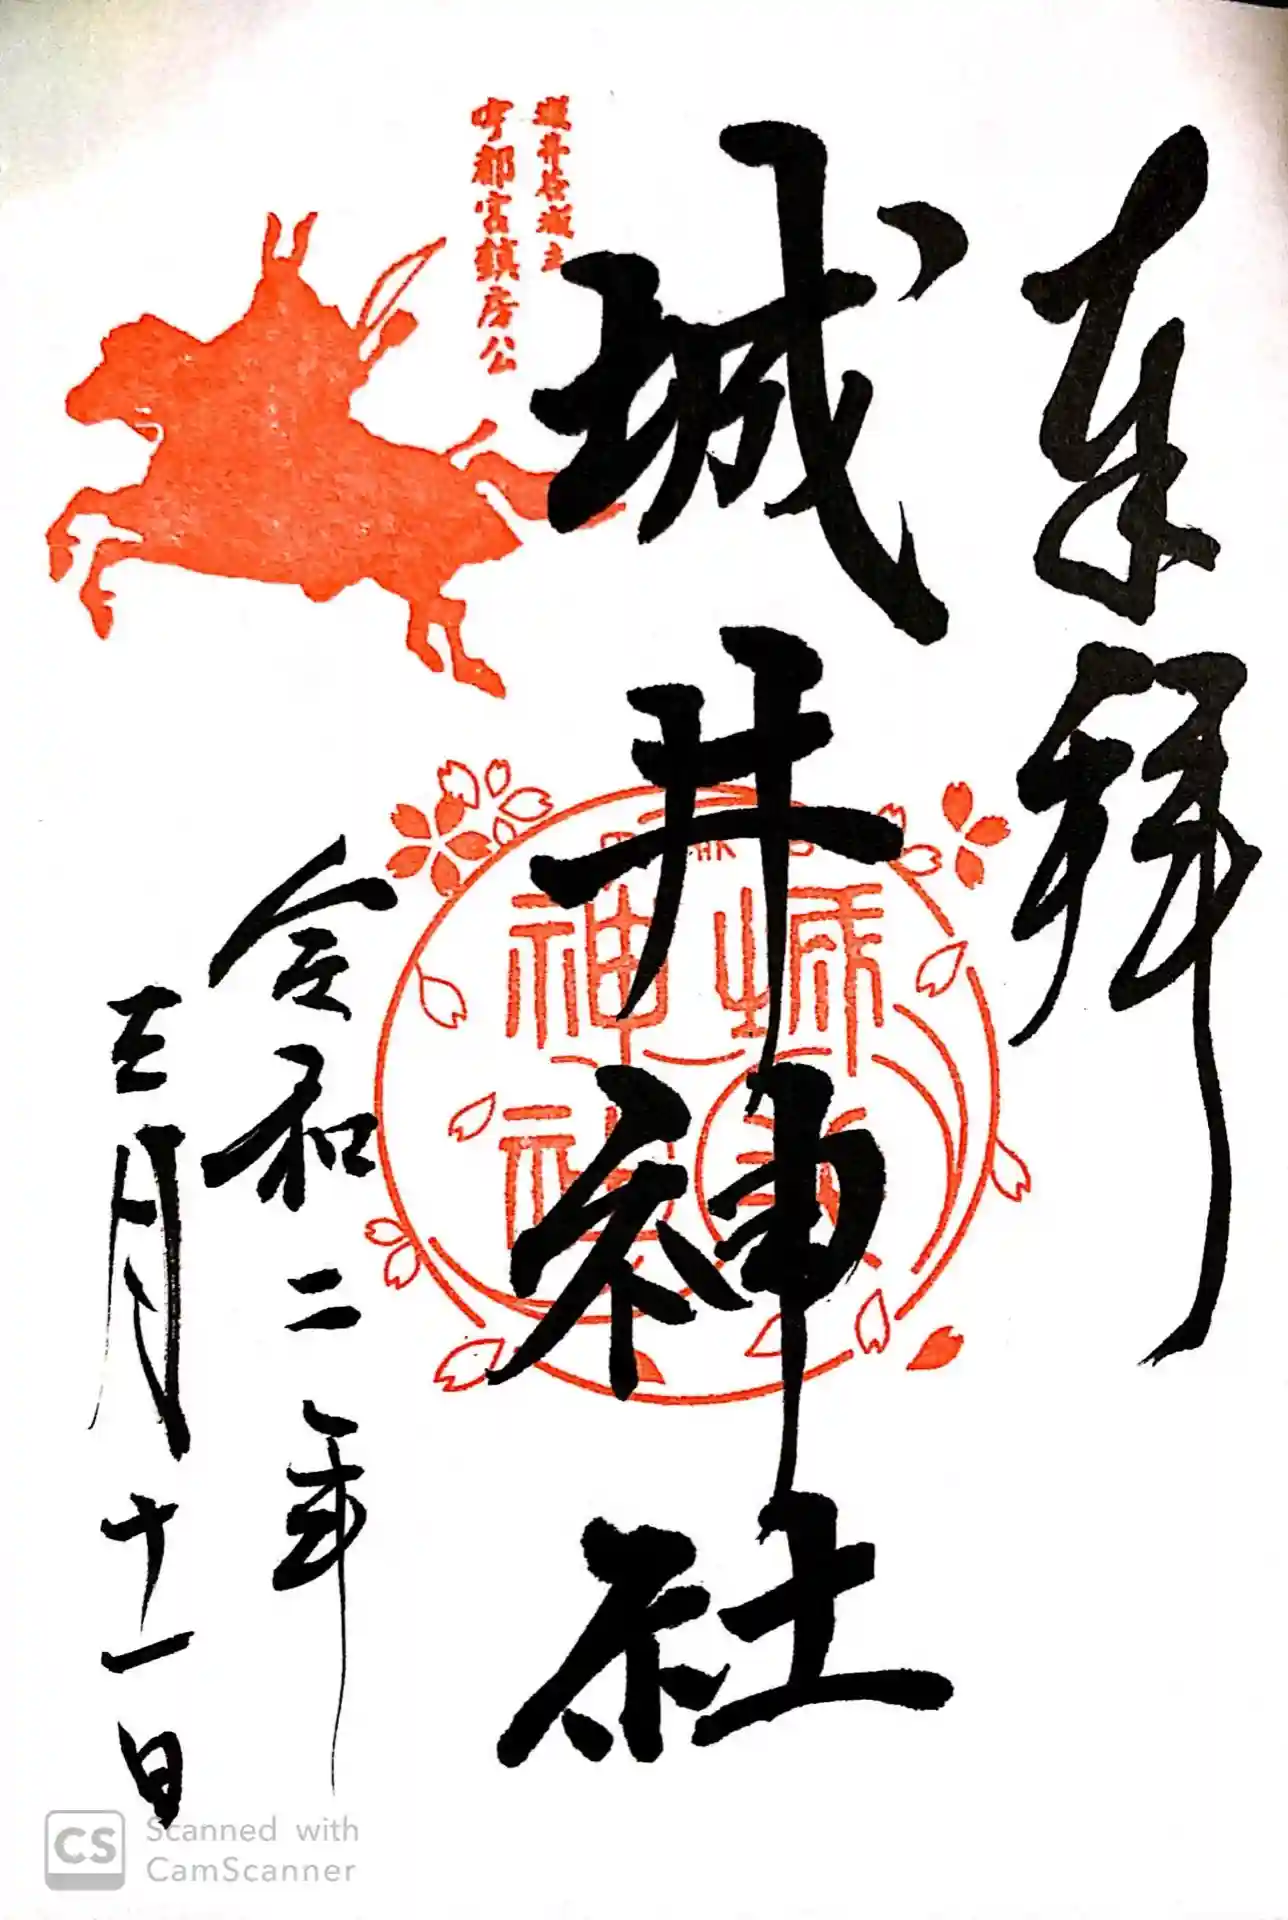 奉拝
城井谷城主
宇都宮鎮房公
城井神社
城井
神社
令和二年
三月十一日
CS Scanned with
CamScanner